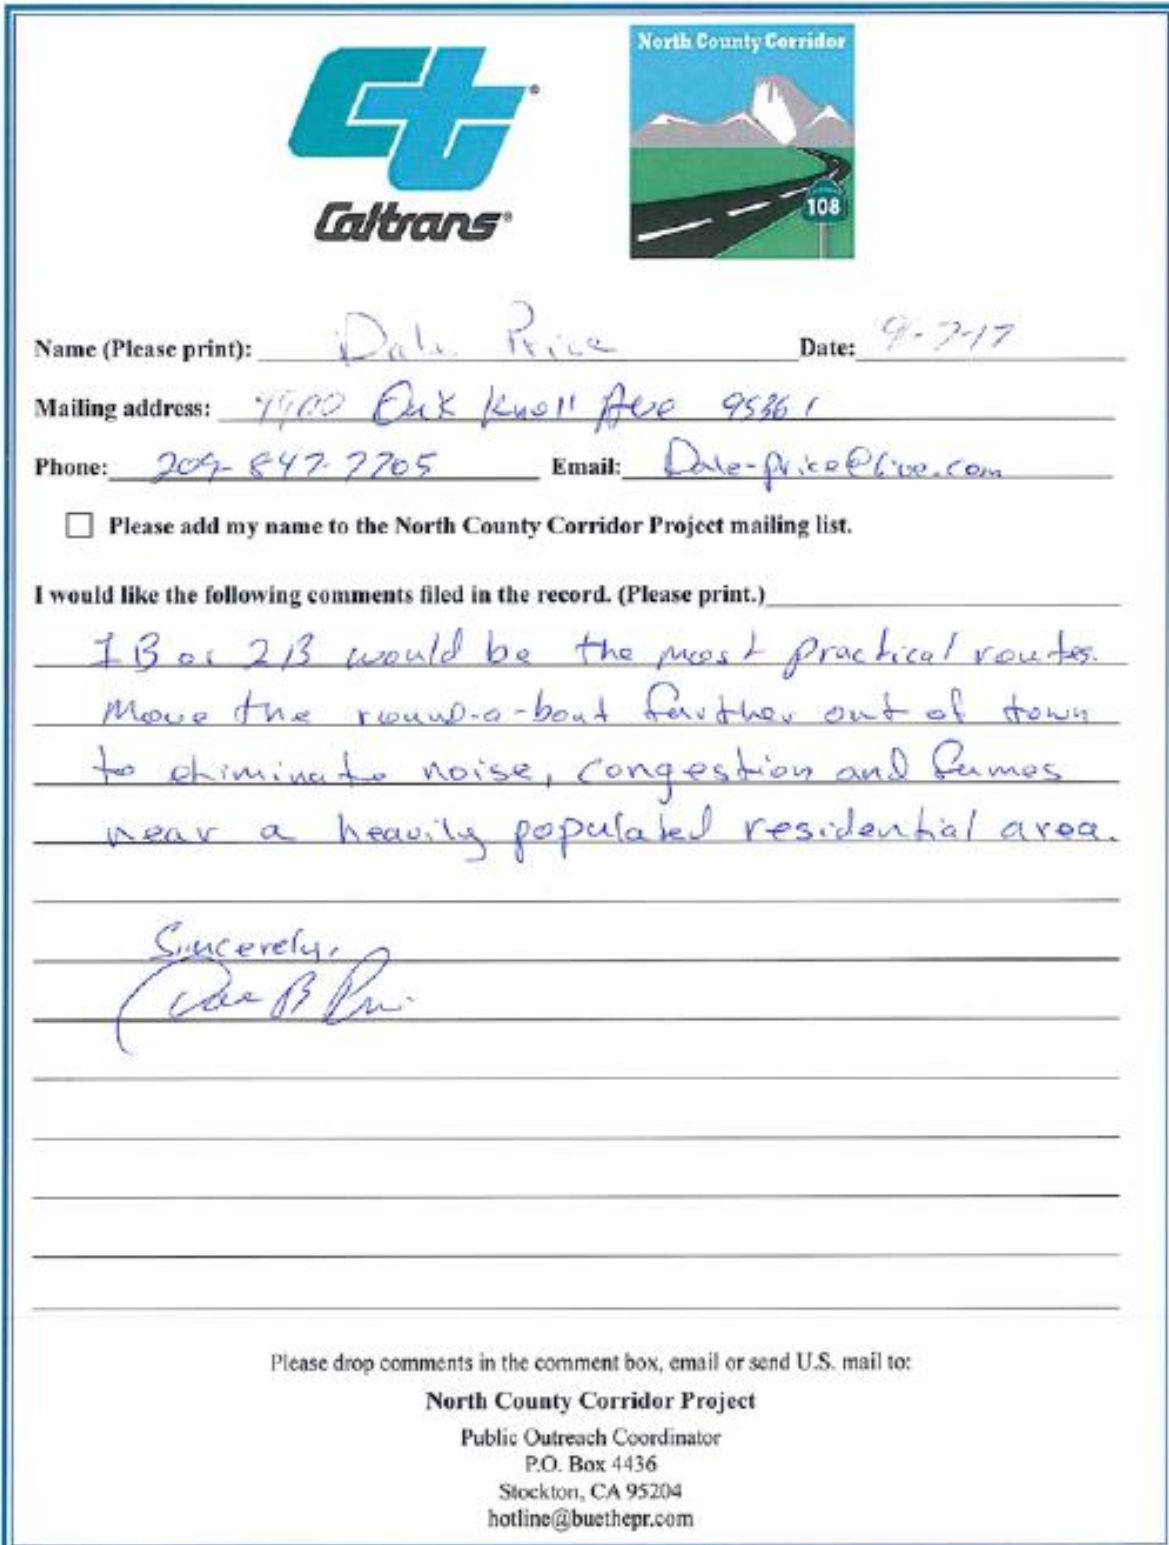 Caltrans®
North County Corridor
108
Name (Please print): Dale Price Date: 9-7-17
Mailing address: Oak Knoll Ave 95361
Phone: 209-847-7705 Email: Dale-price@live.com
Please add my name to the North County Corridor Project mailing list.
I would like the following comments filed in the record. (Please print.)
1B or 2B would be the most practical routes.
Move the round-a-bout farther out of town
to eliminate noise, congestion and fumes
near a heavily populated residential area.
Sincerely,
Please drop comments in the comment box, email or send U.S. mail to:
North County Corridor Project
Public Outreach Coordinator
P.O. Box 4436
Stockton, CA 95204
hotline@buethepr.com